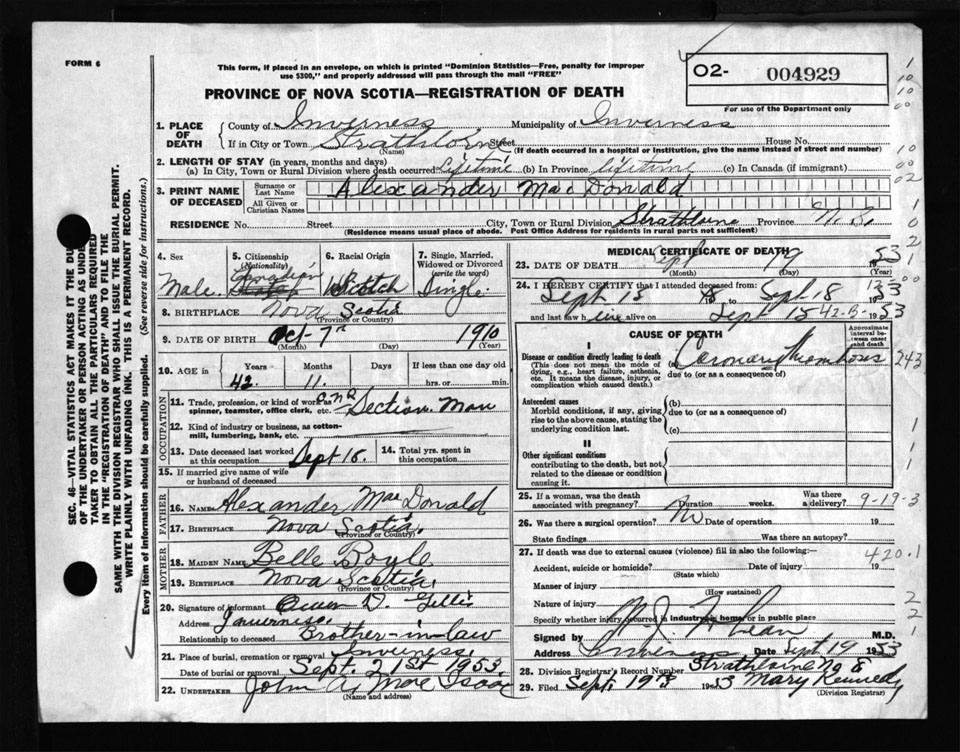 FORM 6
This form, if placed in an envelope, on which is printed "Dominion Statistics—Free, penalty for improper
use $300," and properly addressed will pass through the mail "FREE"
PROVINCE OF NOVA SCOTIA—REGISTRATION OF DEATH
O2- 004929
For use of the Department only
1. PLACE OF DEATH { County of Inverness Municipality of Inverness
If in City or Town Strathlorne Street House No.
(Name) (If death occurred in a hospital or institution, give name instead of street and number)
2. LENGTH OF STAY (in years, months and days)
(a) In City, Town or Rural Division where death occurred Lifetime (b) In Province lifetime (c) In Canada (if immigrant)
3. PRINT NAME OF DECEASED { Surname or Last Name Alexander MacDonald
All Given or Christian Names
RESIDENCE No. Street City, Town or Rural Division Strathlorne Province N.S.
(Residence means usual place of abode. Post Office Address for residents in rural parts not sufficient)
4. Sex 5. Citizenship (Nationality) 6. Racial Origin 7. Single, Married, Widowed or Divorced (write the word)
Male Canadian Scotch Single
8. BIRTHPLACE Nova Scotia
(Province or Country)
9. DATE OF BIRTH Oct 7 1910
(Month) (Day) (Year)
10. AGE in { Years Months Days If less than one day old
42 11 hrs. or min.
OCCUPATION
11. Trade, profession, or kind of work as spinner, teamster, office clerk, etc. C N R Section Man
12. Kind of industry or business, as cotton-mill, lumbering, bank, etc.
13. Date deceased last worked at this occupation Sept 18. 14. Total yrs. spent in this occupation
15. If married give name of wife or husband of deceased
FATHER
16. NAME Alexander MacDonald
17. BIRTHPLACE Nova Scotia
(Province or Country)
MOTHER
18. MAIDEN NAME Belle Boyle
19. BIRTHPLACE Nova Scotia
(Province or Country)
20. Signature of informant Owen D. Gillis
Address Inverness
Relationship to deceased Brother-in-law
21. Place of burial, cremation or removal Inverness
Date of burial or removal Sept. 21st 1953
22. UNDERTAKER John A. MacIsaac
(Name and address)
MEDICAL CERTIFICATE OF DEATH
23. DATE OF DEATH 53
(Month) (Day) (Year)
24. I HEREBY CERTIFY that I attended deceased from:
Sept 18 to Sept 18 1953
and last saw h alive on Sept 18 1953
42-B-
CAUSE OF DEATH
Approximate interval between onset and death
I
Disease or condition directly leading to death (a) Coronary Thrombosis
(This does not mean the mode of dying, e.g., heart failure, asthenia, etc. It means the disease, injury, or complication which caused death.)
due to (or as a consequence of)
243
Antecedent causes
Morbid conditions, if any, giving rise to the above cause, stating the underlying condition last.
(b)
due to (or as a consequence of)
(c)
II
Other significant conditions
contributing to the death, but not related to the disease or condition causing it.
25. If a woman, was the death associated with pregnancy? Duration weeks. Was there a delivery?
9-19-3
26. Was there a surgical operation? No Date of operation 19
State findings Was there an autopsy?
27. If death was due to external causes (violence) fill in also the following:—
420.1
Accident, suicide or homicide? Date of injury 19
(State which)
Manner of injury
(How sustained)
Nature of injury
Specify whether injury occurred in industry, in home or in public place
Signed by M.D.
Address Inverness Date Sept 19 1953
28. Division Registrar's Record Number Strathlorne No 8
29. Filed Sept. 19 1953 Mary Kennedy
(Division Registrar)
SEC. 46—VITAL STATISTICS ACT MAKES IT THE DUTY
OF THE UNDERTAKER OR PERSON ACTING AS UNDER-
TAKER TO OBTAIN ALL THE PARTICULARS REQUIRED
IN THE "REGISTRATION OF DEATH" AND TO FILE THE
SAME WITH THE DIVISION REGISTRAR WHO SHALL ISSUE THE BURIAL PERMIT.
WRITE PLAINLY WITH UNFADING INK. THIS IS A PERMANENT RECORD.
Every item of information should be carefully supplied. (See reverse side for instructions.)